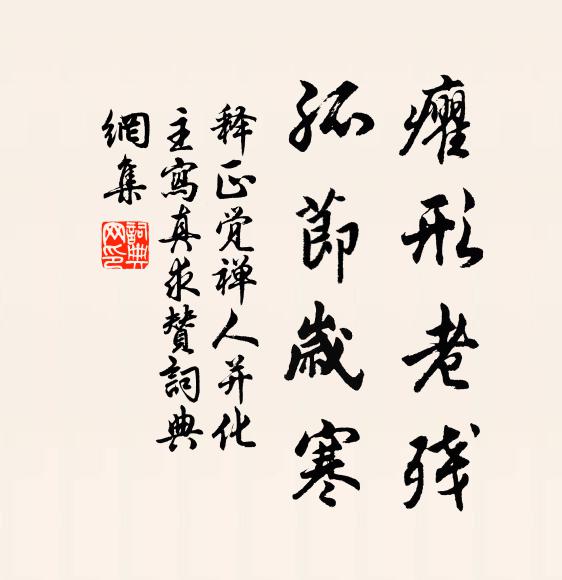 癯形老残
孤節歲寒
释正觉禅人并化
主寫真求贊詞典
網集
詞典
网印